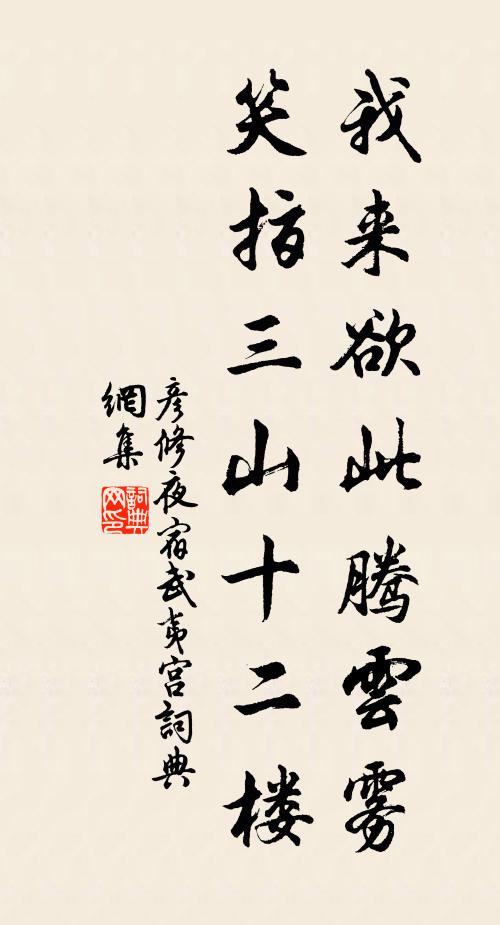 我来欲此腾雲雾
笑指三山十二楼
彦修夜宿武夷宫詞典
網集
詞典网印